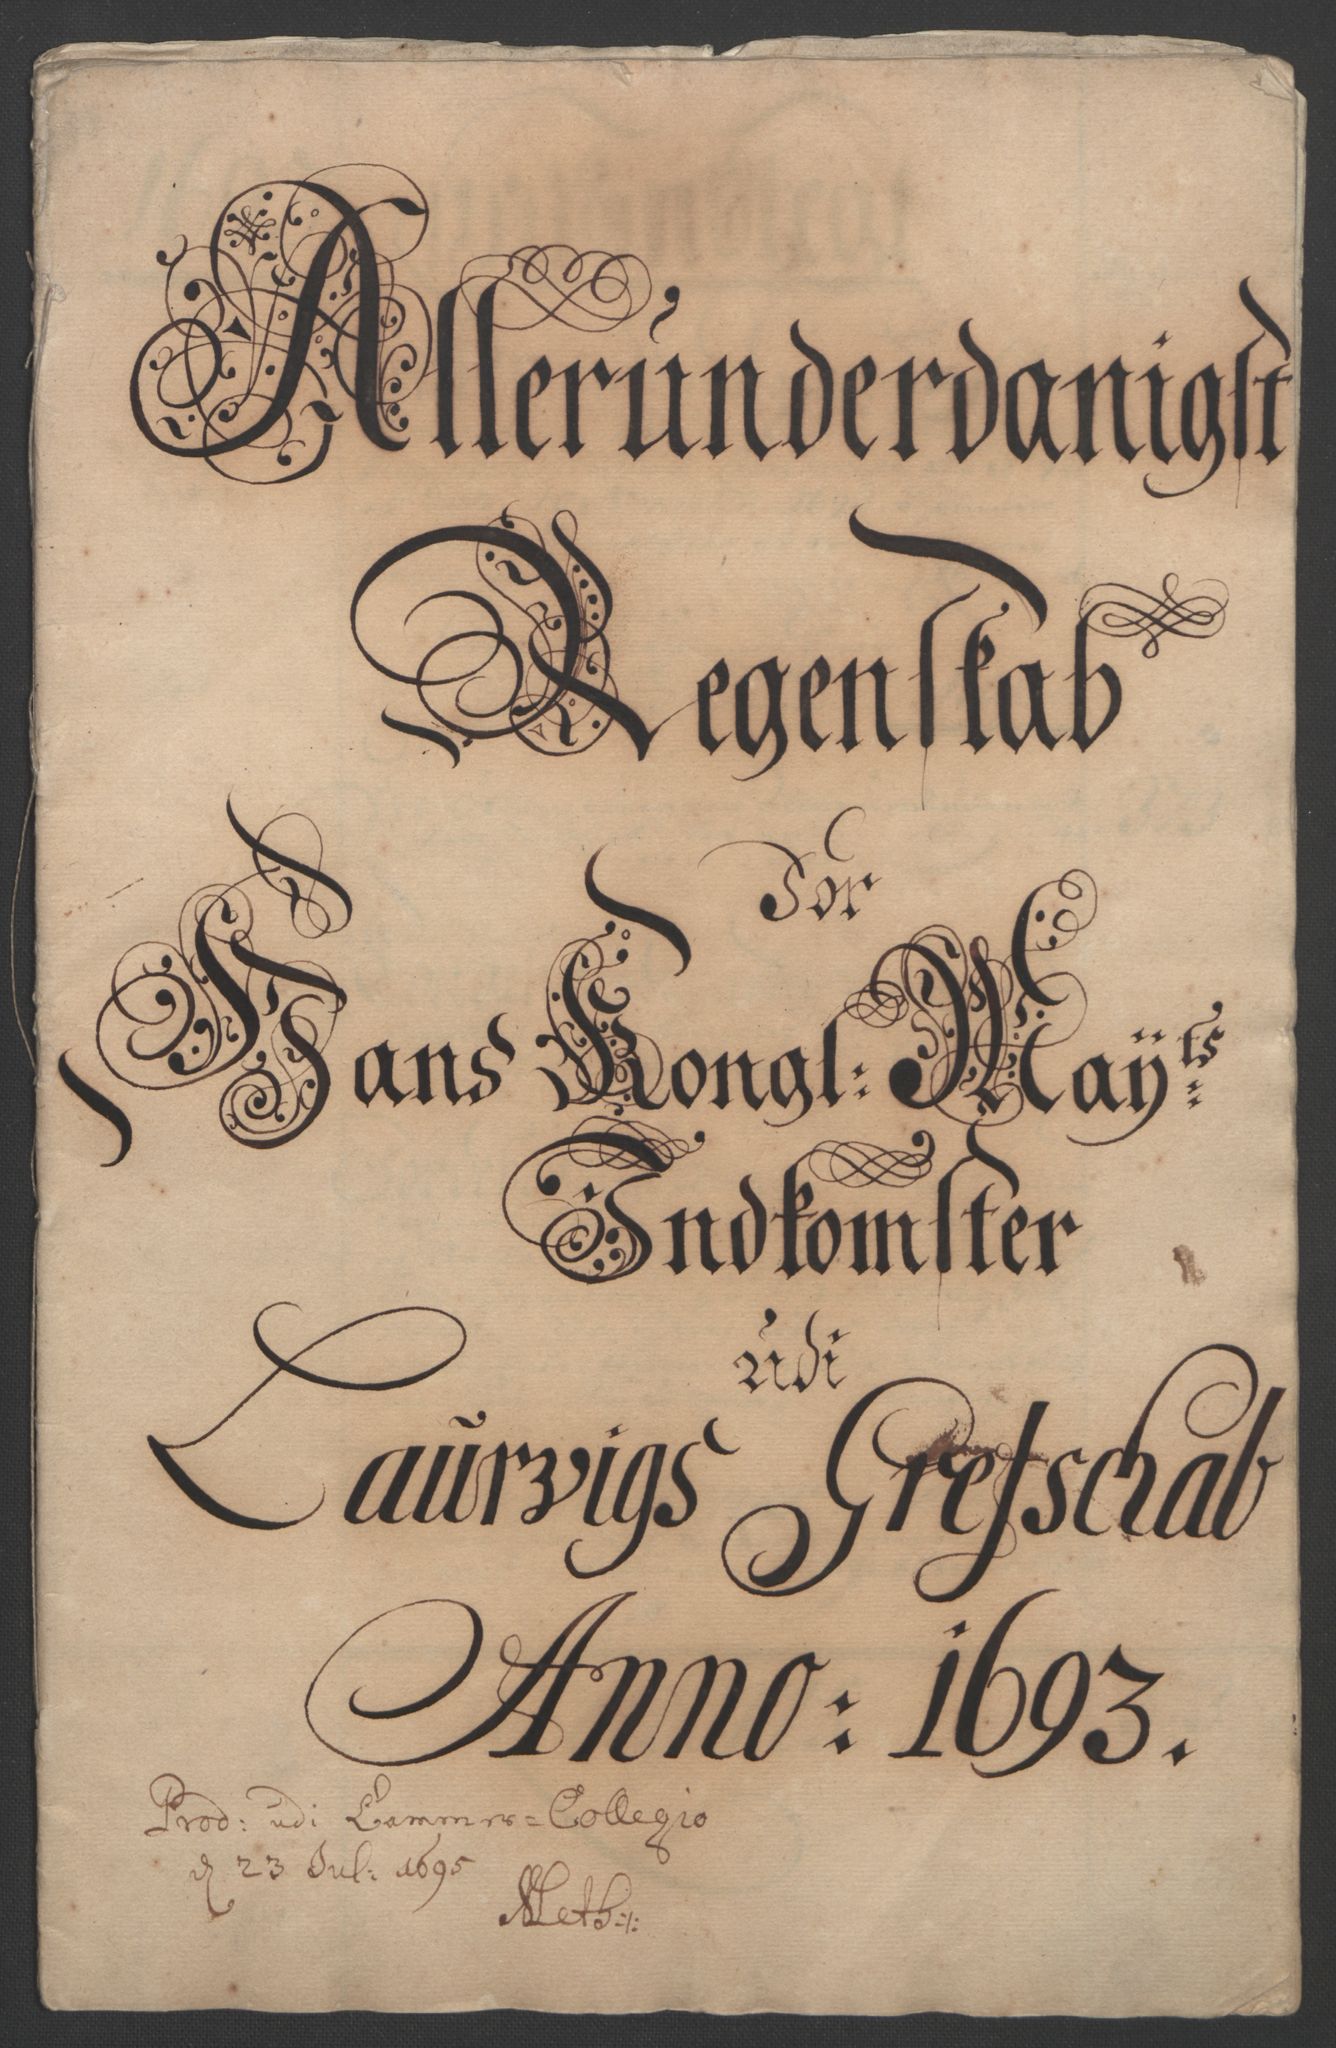 Allerúnderdanigst
Regenskab
For
Hans Kongl: Maÿts:
Indkomster
údi
Laúrvigs Grefschab
Anno: 1693.
Prod: udi Cammer=Collegio
d 23 Jul: 1695